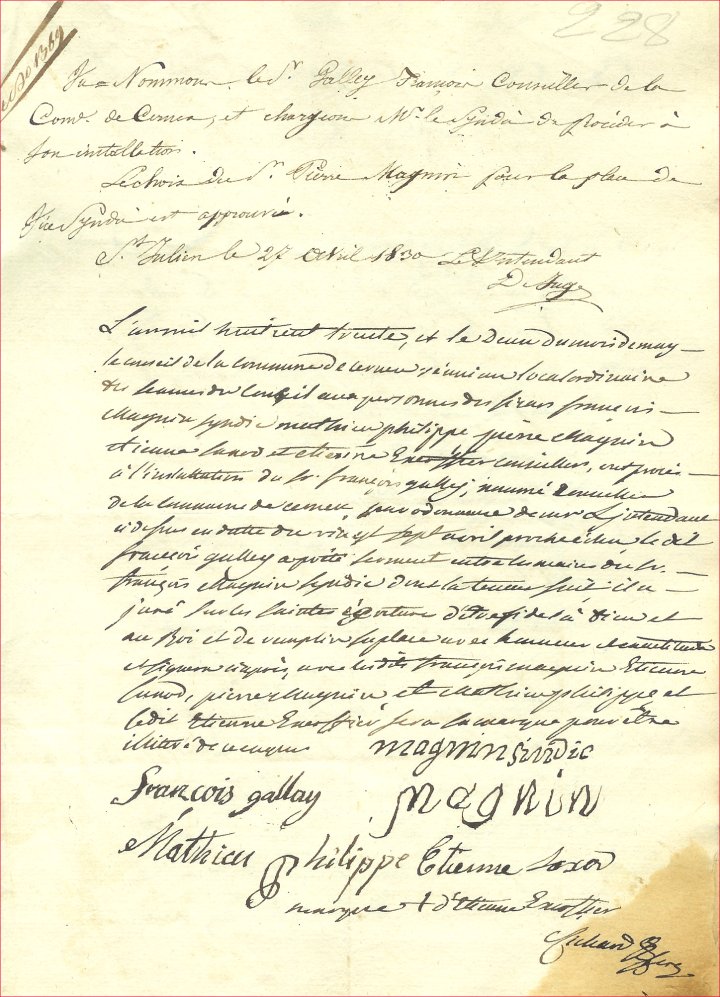 228
Nommons le Sr. Galley François Conseiller de la
Come. de Cernex, et chargeons Mr. le Syndic de procéder à
son installation.
Le choix du Sr. Pierre Magnin pour la place de
Vice Syndic est approuvé.
St. Julien le 27 Avril 1830 L'Intendant
L'an mil huit cent trente, et le deux du mois de may
le conseil de la commune de cernex réuni au local ordinaire
des seances du Conseil aux personnes des sieurs francois
Magnin syndic mathieu philippe pierre Magnin
etienne et etienne conseillers, ont procé
à l'installation du Sr. françois galley, nommé conseiller
de la commune de cernex, par ordonnance de mr L'jntendant
ci dessus en datte du vingt sept avril proche échu le dit
francois galley a prêté serment entre les mains du Sr.
françois Magnin syndic dont la teneur suit: il a
juré sur les saintes écriture d'être fidel à Dieu et
au Roi et de remplir sa place avec honneur et exactitude
et signeront ci après, avec les dits françois magnin Etienne
pierre Magnin et Mathieu philippe et
ledit Etienne fera sa marque pour être
illitéré de ce enquis
magnin sindic
François gallay
Magnin
Mathieu Philippe Etienne
marque + d'étienne
Richard